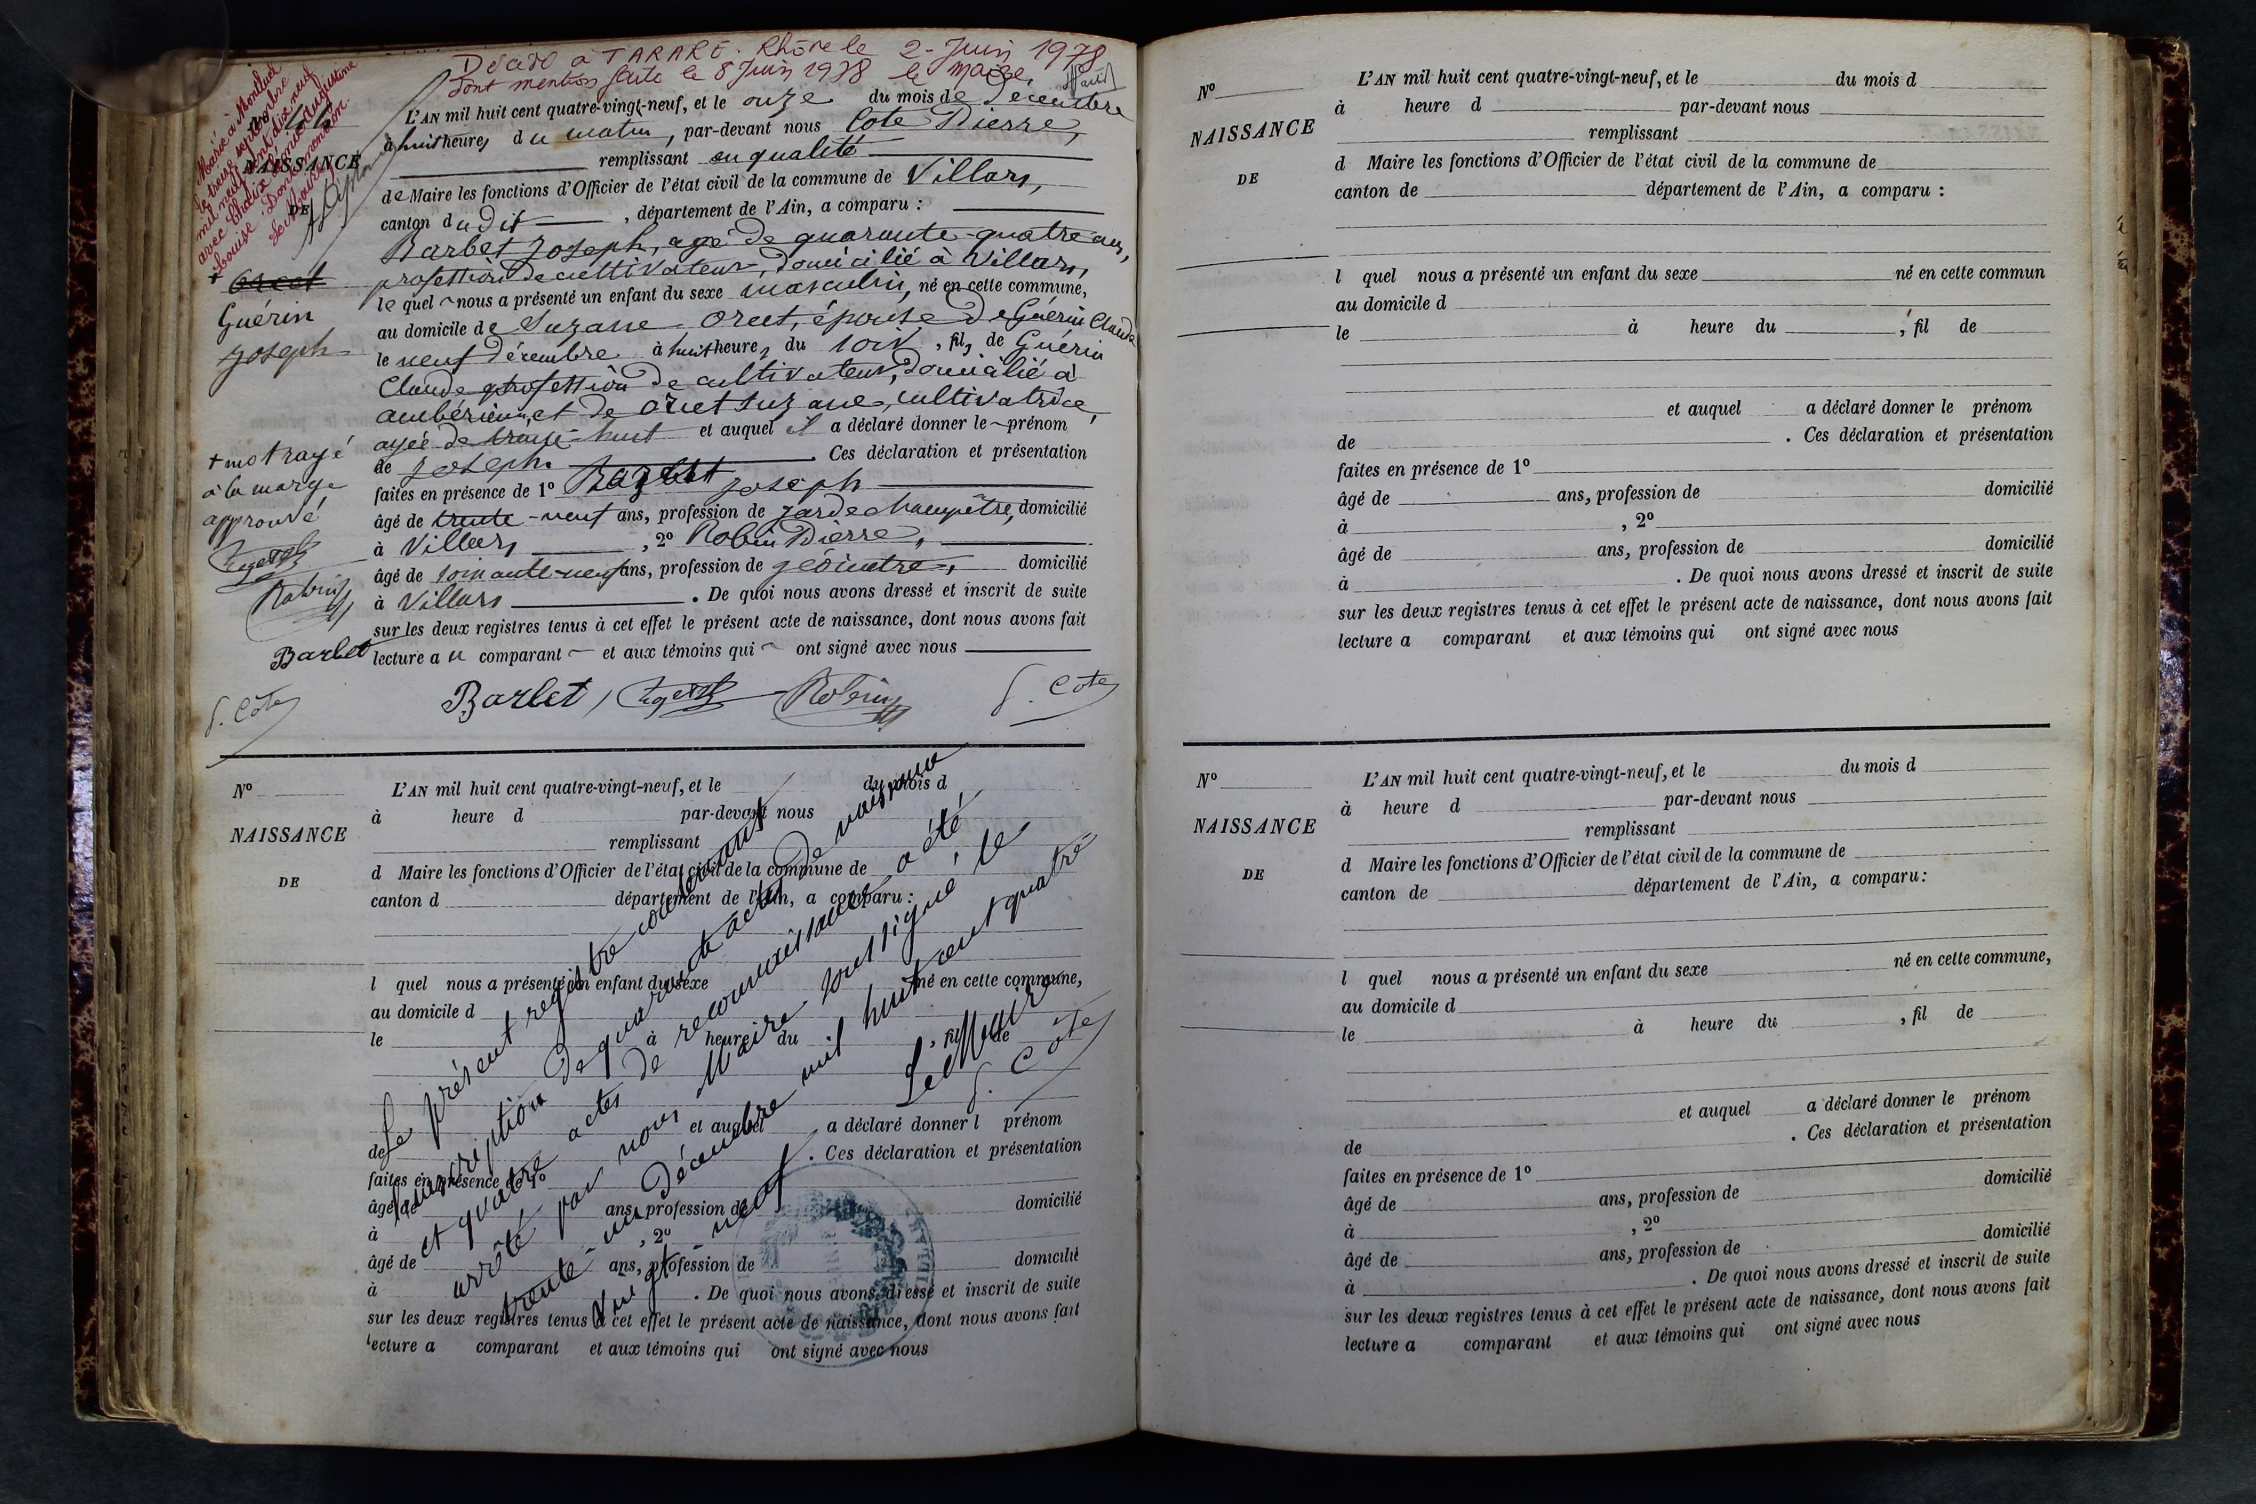 Décédé à TARARE. Rhône le 2-Juin 1978
Dont mention faite le 8 Juin 1978 le Maire,
Marié à Montluel
le treize septembre
mil neuf cent dix neuf
avec
Louise
Dont mention.
NAISSANCE
DE
+ Orcet
Guérin
Joseph
+ mot rayé
à la marge
approuvé
Robin
Barbet
J. Cote
L'AN mil huit cent quatre-vingt-neuf, et le onze du mois de Décembre
à huit heures du matin, par-devant nous Cote Pierre,
remplissant en qualité
de Maire les fonctions d'Officier de l'état civil de la commune de Villars,
canton dudit, département de l'Ain, a comparu :
Barbet Joseph, agé de quarante-quatre ans,
profession de cultivateur, domicilié à Villars,
lequel nous a présenté un enfant du sexe masculin, né en cette commune,
au domicile de Suzane Orcet, épouse de Guérin Claude
le neuf décembre à huit heures du soir, fils de Guérin
Claude profession de cultivateur, domicilié à
ambérieux et de Orcet Suzane, cultivatrice,
agée de trente-huit et auquel il a déclaré donner le prénom
de Joseph. Ces déclaration et présentation
faites en présence de 1º Joseph
âgé de trente-neuf ans, profession de garde champêtre, domicilié
à Villars, 2º Robin Pierre,
âgé de soixante-neuf ans, profession de géomètre, domicilié
à Villars. De quoi nous avons dressé et inscrit de suite
sur les deux registres tenus à cet effet le présent acte de naissance, dont nous avons fait
lecture au comparant et aux témoins qui ont signé avec nous
Barbet Robin J. Cote
Nº
NAISSANCE
DE
L'AN mil huit cent quatre-vingt-neuf, et le du mois d
à heure d par-devant nous
remplissant
d Maire les fonctions d'Officier de l'état civil de la commune de
canton d département de l'Ain, a comparu :
l quel nous a présenté un enfant du sexe né en cette commune,
au domicile d
le à heure du , fil de
et auquel a déclaré donner l prénom
de . Ces déclaration et présentation
faites en présence de 1º
âgé de ans, profession de domicilié
à , 2º
âgé de ans, profession de domicilié
à . De quoi nous avons dressé et inscrit de suite
sur les deux registres tenus à cet effet le présent acte de naissance, dont nous avons fait
lecture a comparant et aux témoins qui ont signé avec nous
Le présent registre contenant
l'inscription de quarante actes de naissance
et quatre actes de reconnaissance a été
arrêté par nous Maire soussigné, le
trente-un Décembre mil huit cent quatre
vingt-neuf.
Le Maire
J. Cote
Nº
NAISSANCE
DE
L'AN mil huit cent quatre-vingt-neuf, et le du mois d
à heure d par-devant nous
remplissant
d Maire les fonctions d'Officier de l'état civil de la commune de
canton de département de l'Ain, a comparu :
l quel nous a présenté un enfant du sexe né en cette commun
au domicile d
le à heure du , fil de
et auquel a déclaré donner le prénom
de . Ces déclaration et présentation
faites en présence de 1º
âgé de ans, profession de domicilié
à , 2º
âgé de ans, profession de domicilié
à . De quoi nous avons dressé et inscrit de suite
sur les deux registres tenus à cet effet le présent acte de naissance, dont nous avons fait
lecture a comparant et aux témoins qui ont signé avec nous
Nº
NAISSANCE
DE
L'AN mil huit cent quatre-vingt-neuf, et le du mois d
à heure d par-devant nous
remplissant
d Maire les fonctions d'Officier de l'état civil de la commune de
canton de département de l'Ain, a comparu :
l quel nous a présenté un enfant du sexe né en cette commune,
au domicile d
le à heure du , fil de
et auquel a déclaré donner le prénom
de . Ces déclaration et présentation
faites en présence de 1º
âgé de ans, profession de domicilié
à , 2º
âgé de ans, profession de domicilié
à . De quoi nous avons dressé et inscrit de suite
sur les deux registres tenus à cet effet le présent acte de naissance, dont nous avons fait
lecture a comparant et aux témoins qui ont signé avec nous